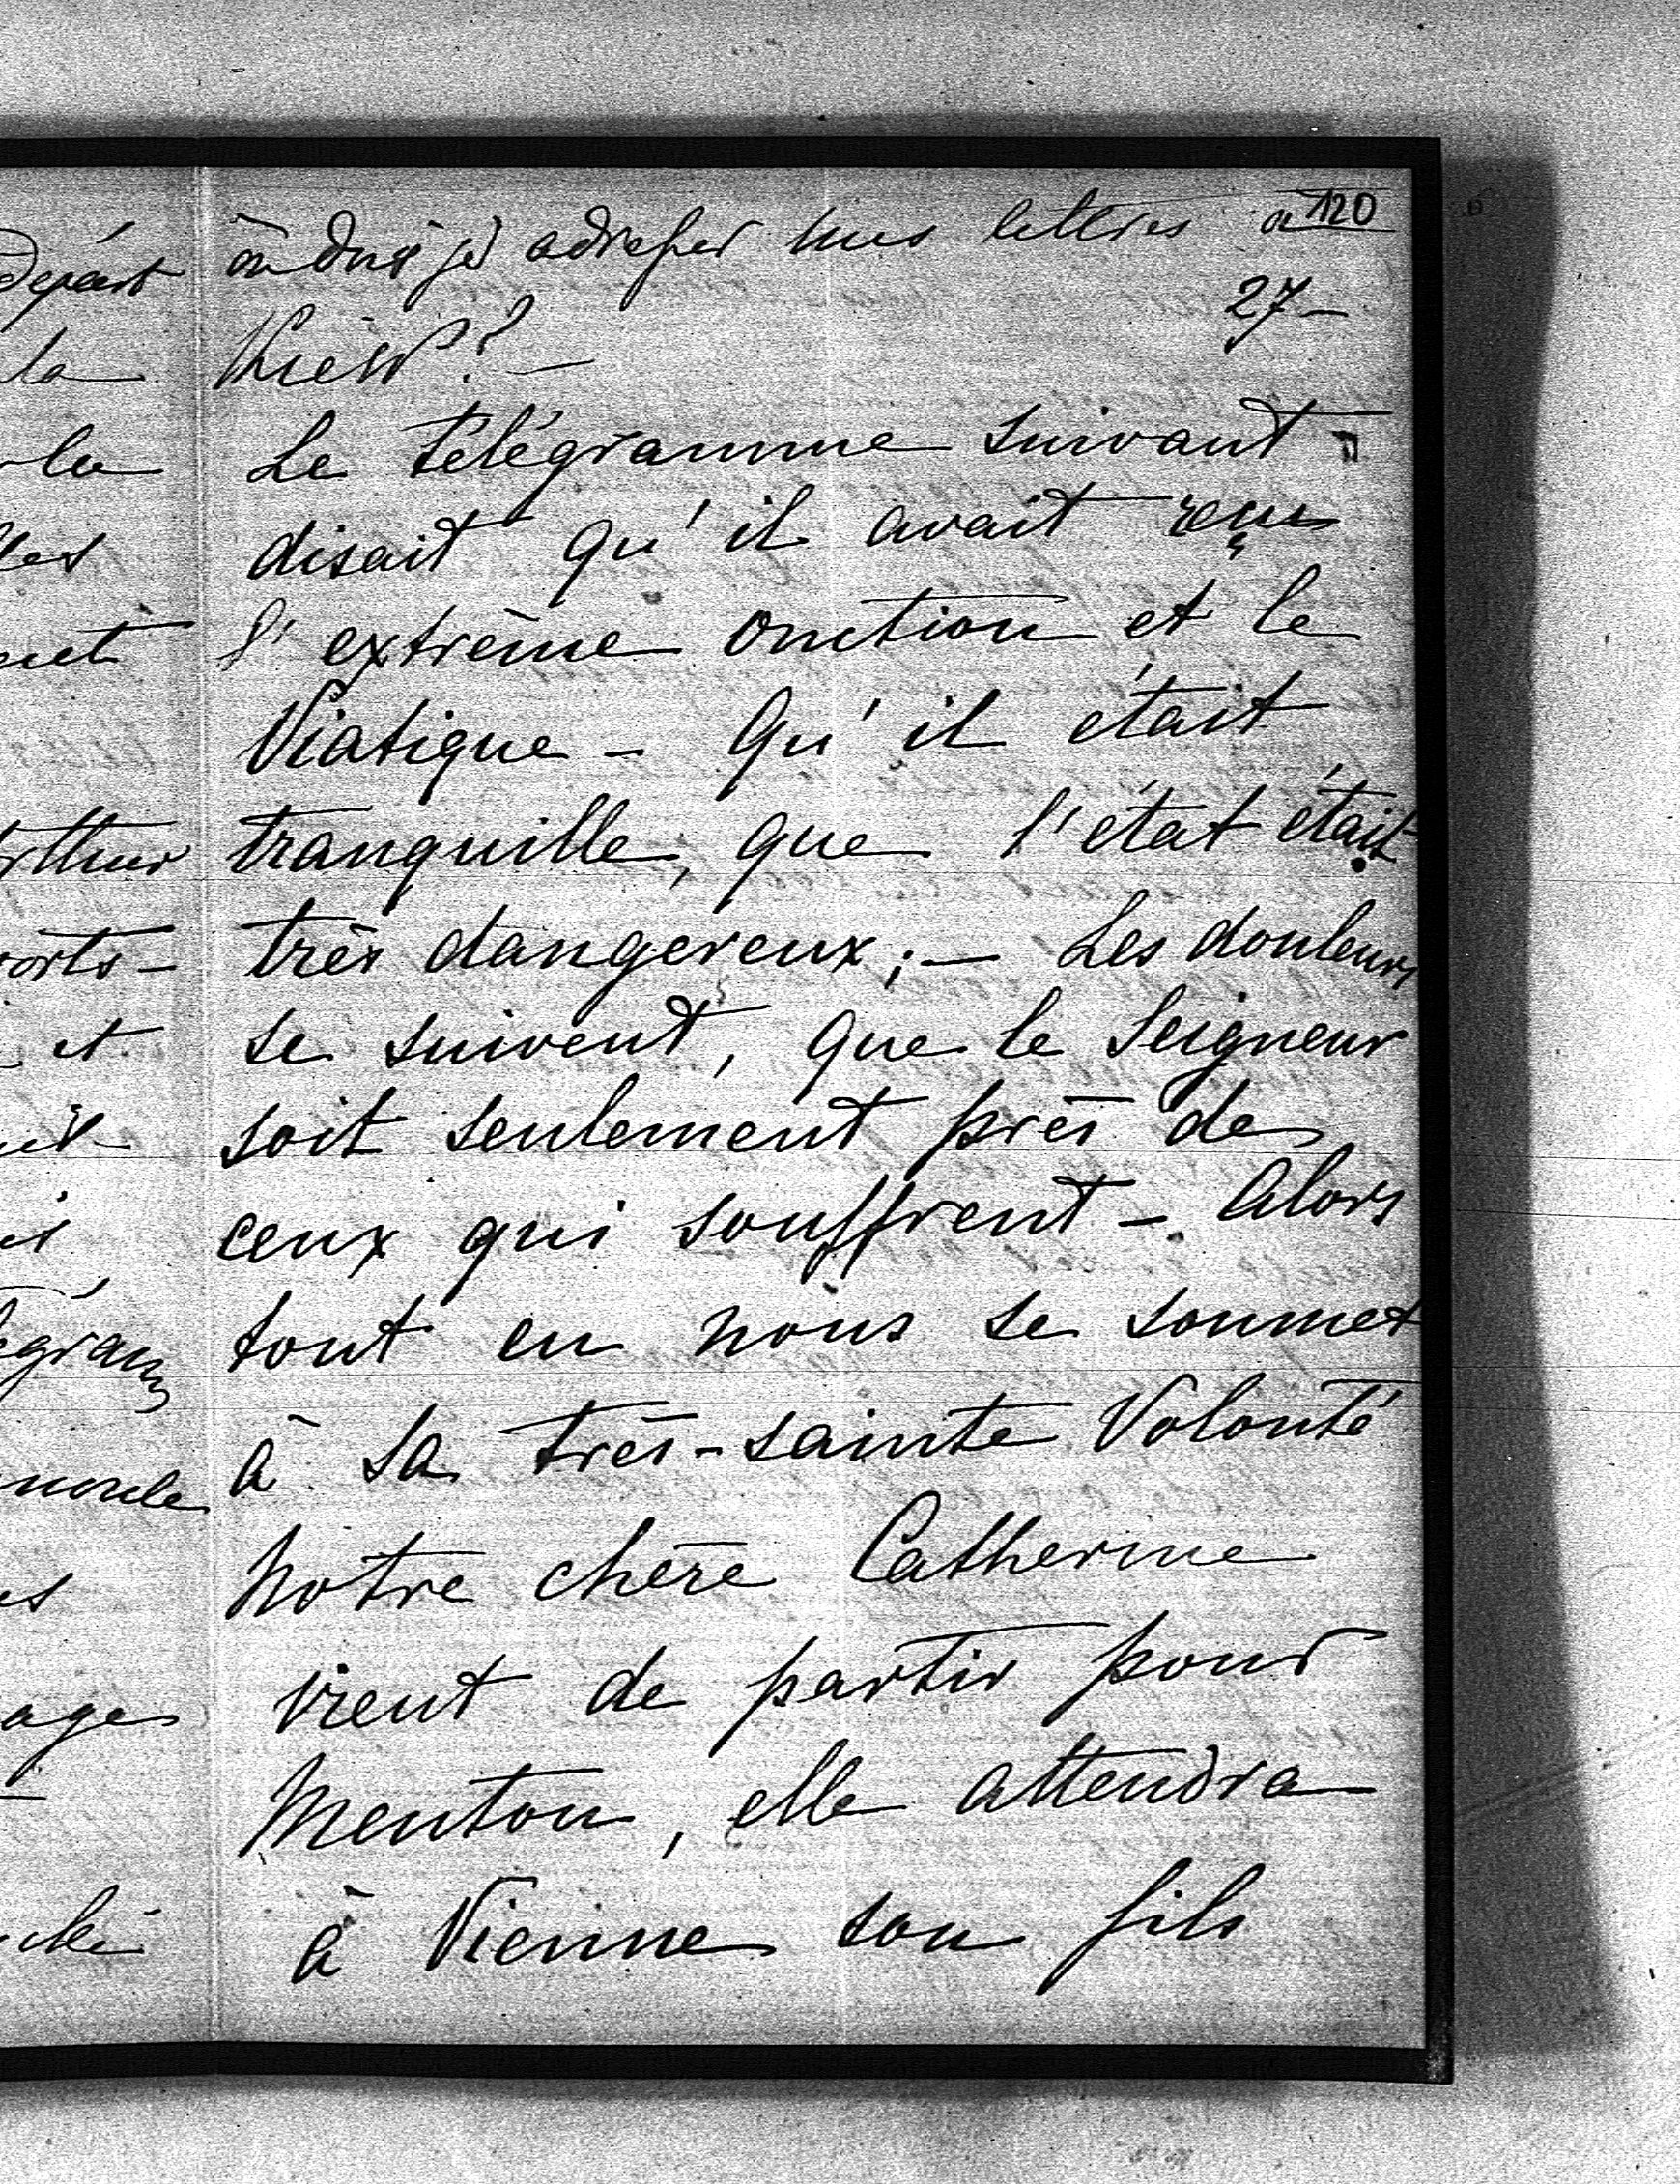 120
où dois je adresser mes lettres a
27-
Kieff? -
Le télégramme suivant
disait qu'il avait reçu
l'extrême onction et le
Viatique - Qu'il était
tranquille, que l'état était
très dangereux; - Les douleurs
se suivent, que le Seigneur
soit seulement près de
ceux qui souffrent - Alors
tout en nous se soumet
à sa très-sainte Volonté
Notre chère Catherine
vient de partir pour
Menton, elle attendra
à Vienne son fils
départ
la
la
les
et